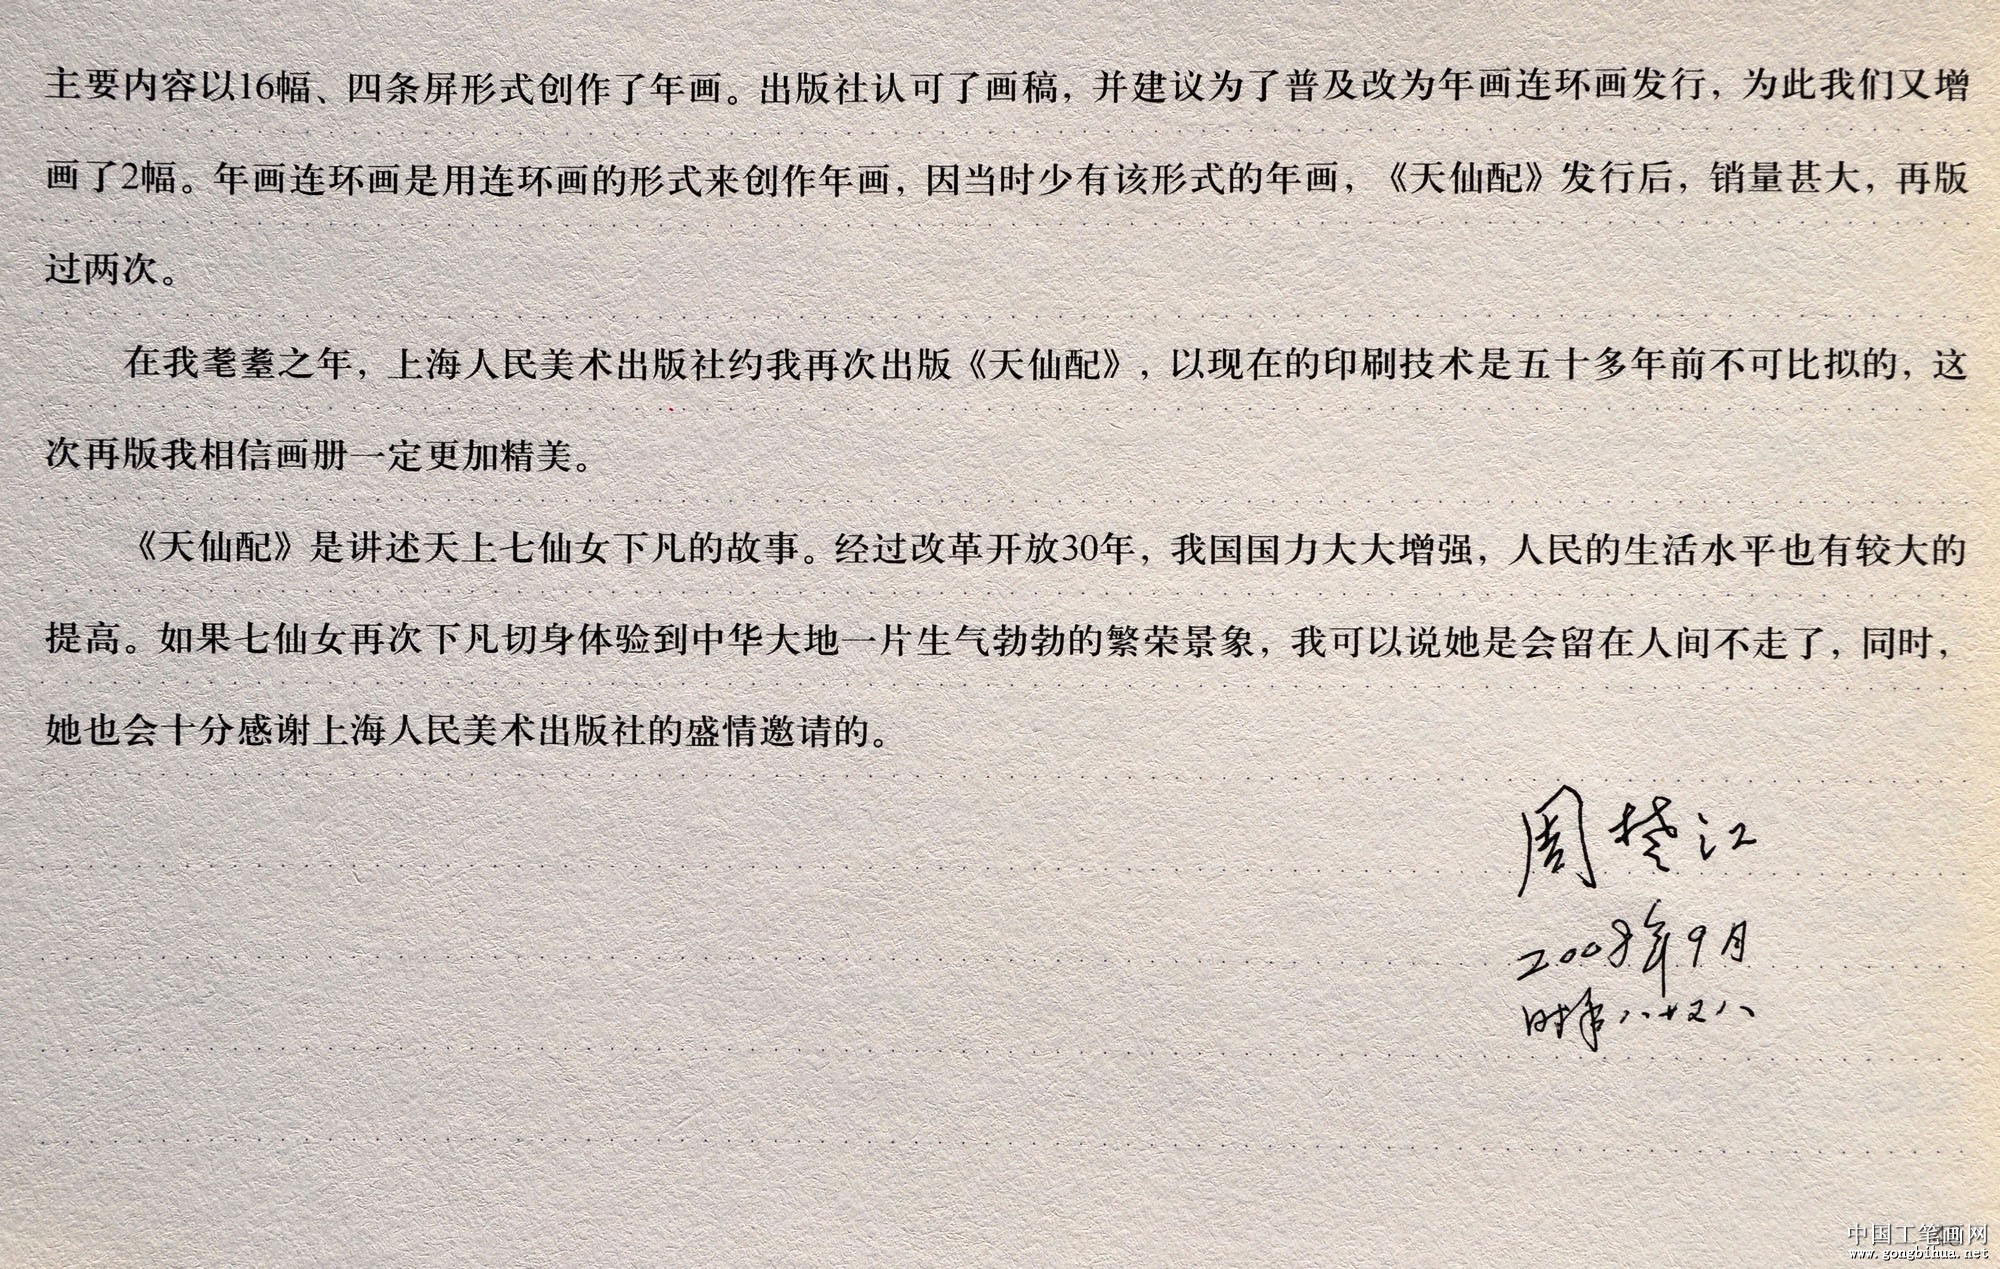 主要内容以16幅、四条屏形式创作了年画。出版社认可了画稿，并建议为了普及改为年画连环画发行，为此我们又增
画了2幅。年画连环画是用连环画的形式来创作年画，因当时少有该形式的年画，《天仙配》发行后，销量甚大，再版
过两次。
在我耄耋之年，上海人民美术出版社约我再次出版《天仙配》，以现在的印刷技术是五十多年前不可比拟的，这
次再版我相信画册一定更加精美。
《天仙配》是讲述天上七仙女下凡的故事。经过改革开放30年，我国国力大大增强，人民的生活水平也有较大的
提高。如果七仙女再次下凡切身体验到中华大地一片生气勃勃的繁荣景象，我可以说她是会留在人间不走了，同时，
她也会十分感谢上海人民美术出版社的盛情邀请的。
周楚江
2008年9月
时年八十又八
中国工笔画网
www.gongbihua.net